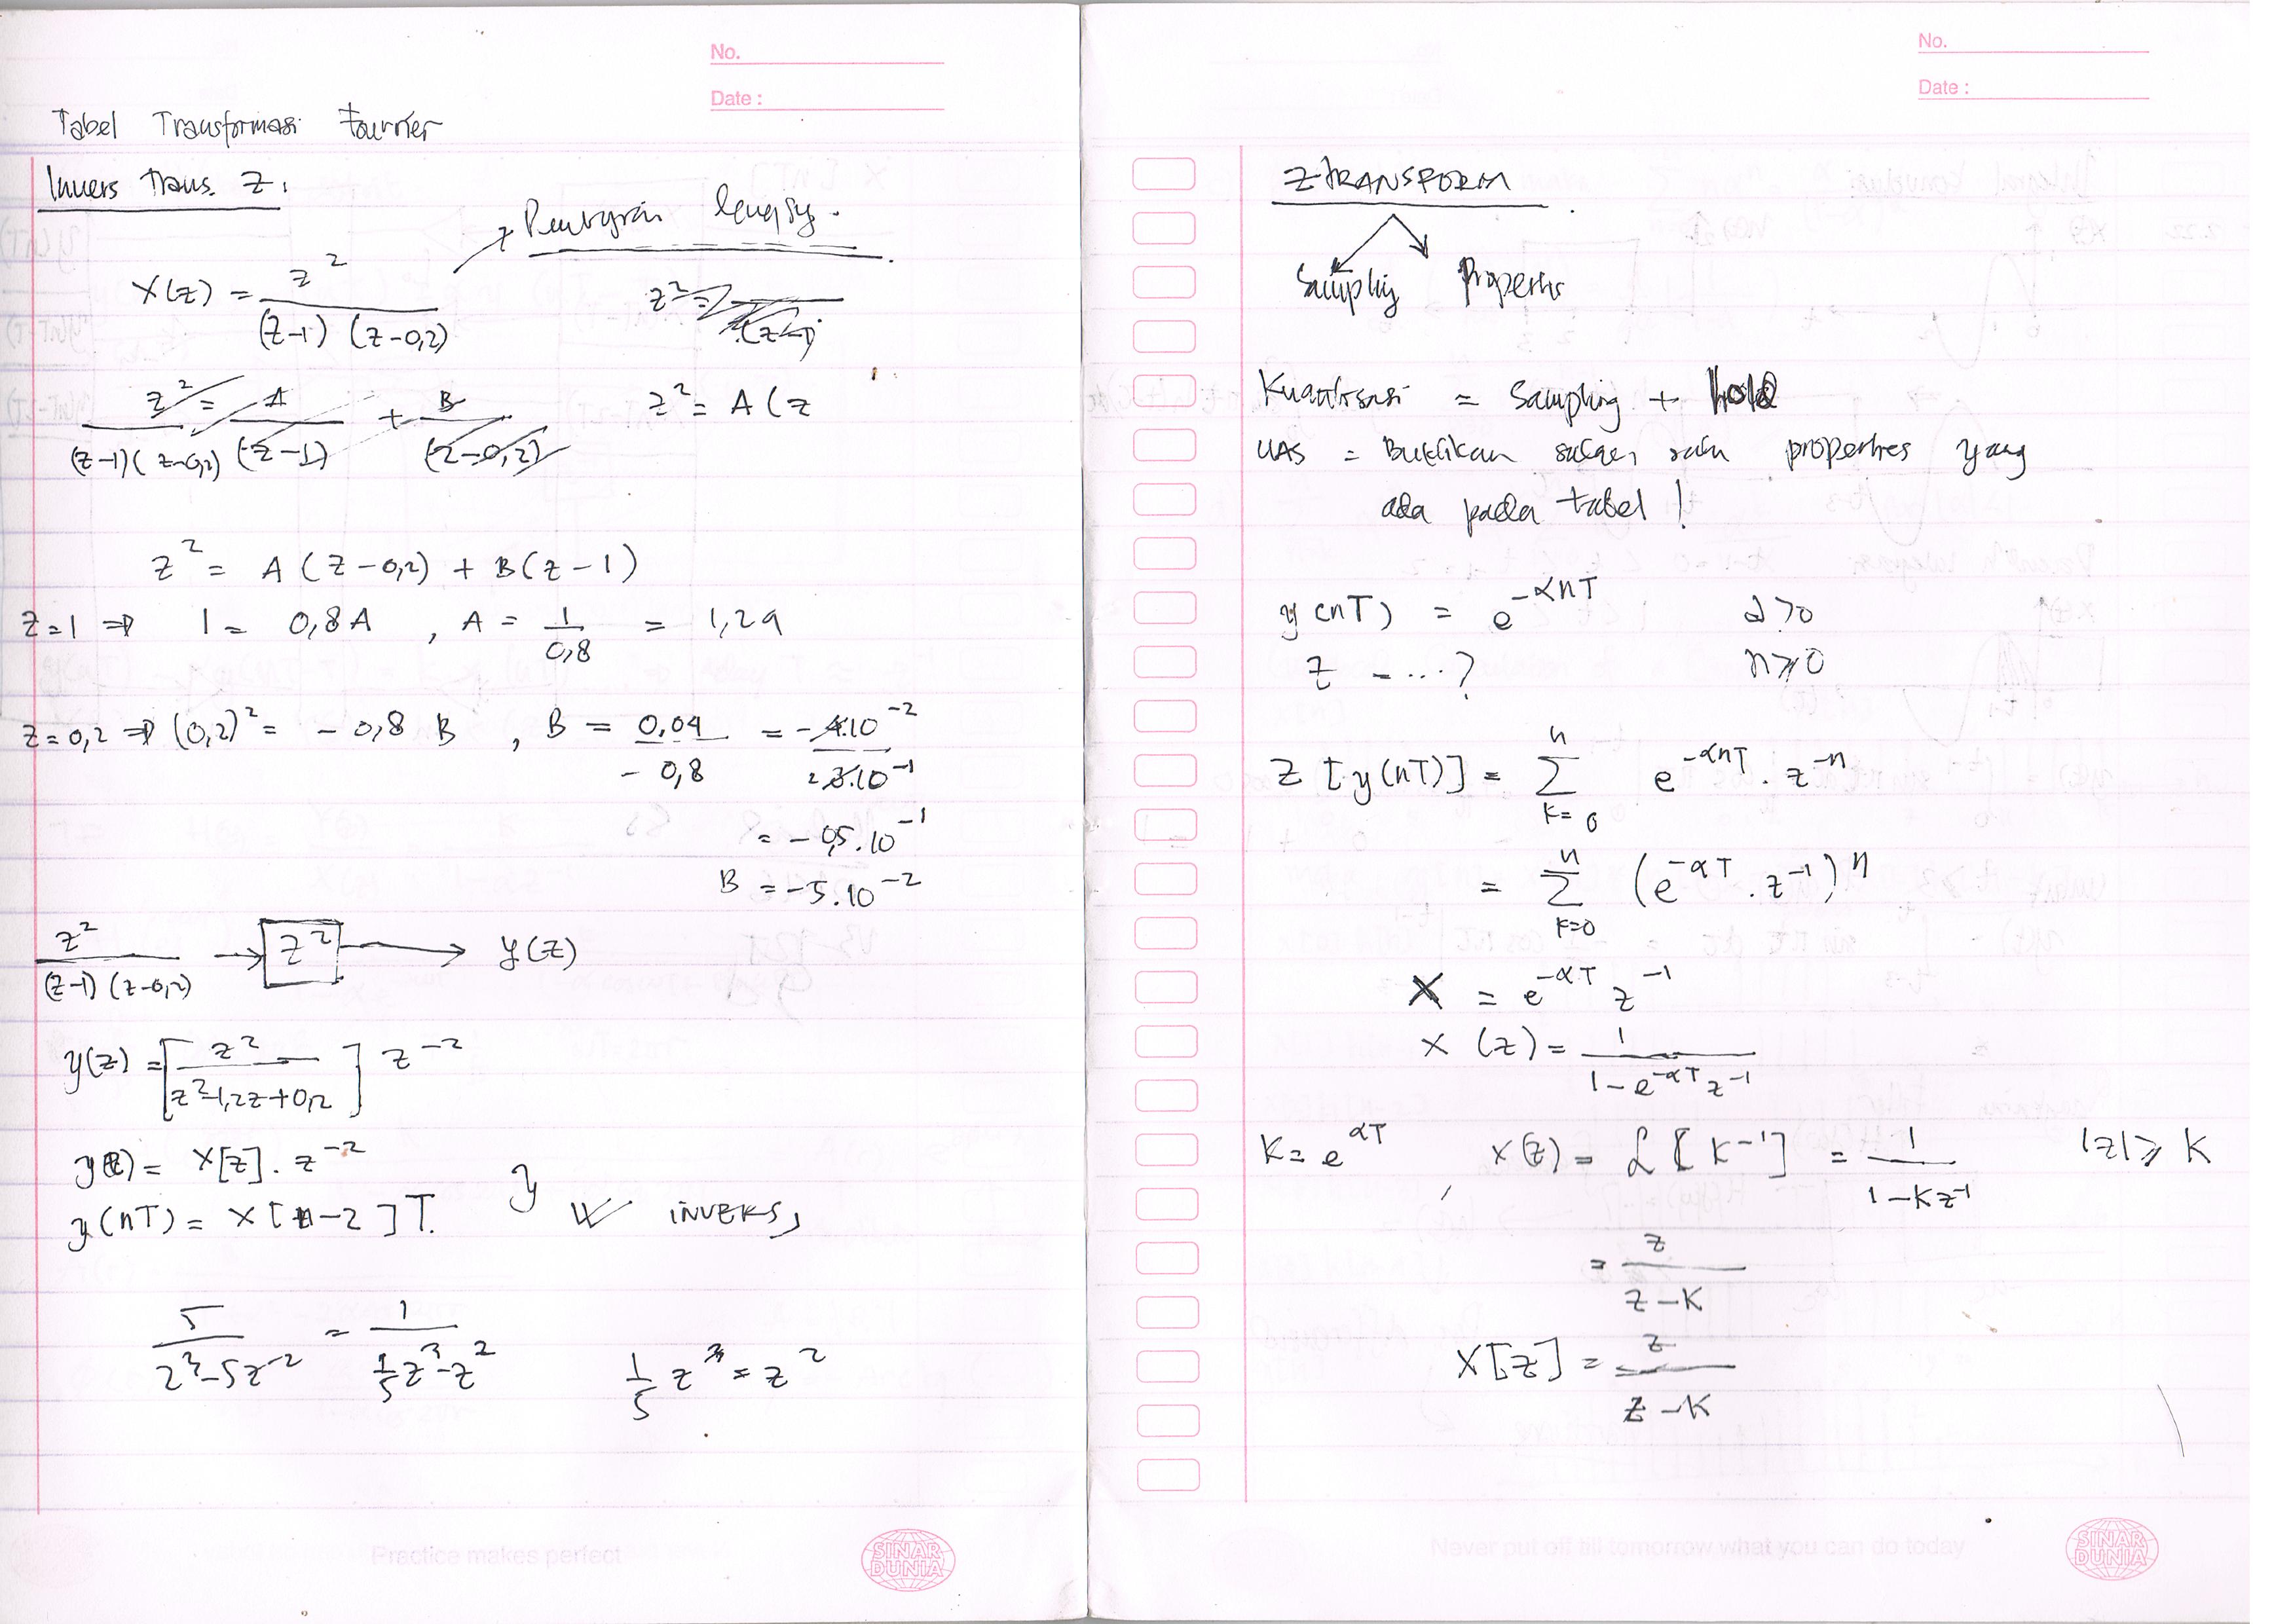 No.
Date :
Tabel Transformasi Fourier
Invers Trans. Z.
X(z) = z² / (z-1) (z-0,2)
z² = (z-1)
z² / (z-1)(z-0,2) = A / (z-1) + B / (z-0,2)
z² = A (z
z² = A (z-0,2) + B (z-1)
z=1 ⇒ 1 = 0,8 A , A = 1 / 0,8 = 1,2a
z=0,2 ⇒ (0,2)² = -0,8 B , B = 0,04 / -0,8 = -4.10⁻² / 2 8.10⁻¹
= -0,5.10⁻¹
B = -5.10⁻²
z² / (z-1) (z-0,2) → z² → y(z)
y(z) = [ z² / z²-1,2z+0,2 ] z⁻²
y(z) = X[z] . z⁻²
y(nT) = X[n-2]T. INVERS
5 / z³-5z⁻² = 1 / 1/5 z³-z²
1/5 z³ = z²
Practice makes perfect
SINAR DUNIA
No.
Date :
Z TRANSFORM
Sampling Properties
Kuantisasi = Sampling + Hold
UAS = Buktikan salah satu properties yang
ada pada tabel !
y(nT) = e^-αnT α>0
z - ...? n≥0
Z [y(nT)] = Σ n k=0 e^-αnT . z⁻ⁿ
= Σ n k=0 (e^-αT . z⁻¹)ⁿ
X = e^-αT z⁻¹
X (z) = 1 / 1-e^-αT z⁻¹
K = e^αT , X(z) = ℒ [K⁻¹] = 1 / 1-Kz⁻¹ |z| ≥ K
= z / z-K
X[z] = z / z-K
Never put off till tomorrow what you can do today
SINAR DUNIA